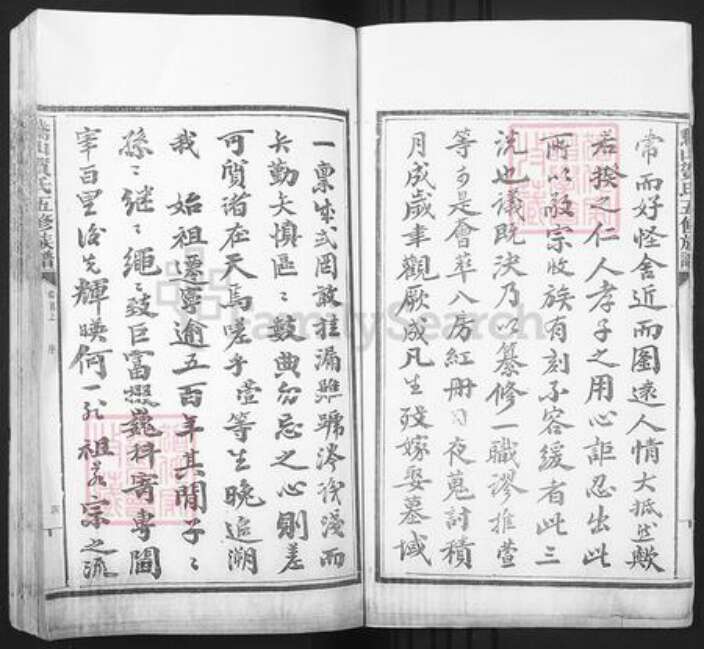 常而好怪舍近而圖遠人情大抵然歟
若揆之仁人孝子之用心詎忍出此
所以敬宗收族有刻不容緩者此三
洗也議既決乃以纂修一職謬推萱
等于是薈萃八房紅冊日夜蒐討積
月成歲聿觀厥成凡生歿嫁娶墓域
一稟成式罔敢挂漏雖號淺而
矢勤矢慎區區數典勿忘之心則差
可質諸在天焉嗟乎萱等生晚追溯
我 始祖遷寧逾五百年其間子子
孫孫繼繼繩繩致巨富掇巍科寄專閫
宰百里後先輝映何一祖宗之流
賀氏五修族譜
卷首上 序
FamilySearch